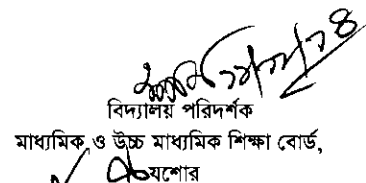 বিদ্যালয় পরিদর্শক
মাধ্যমিক ও উচ্চ মাধ্যমিক শিক্ষা বোর্ড,
যশোর